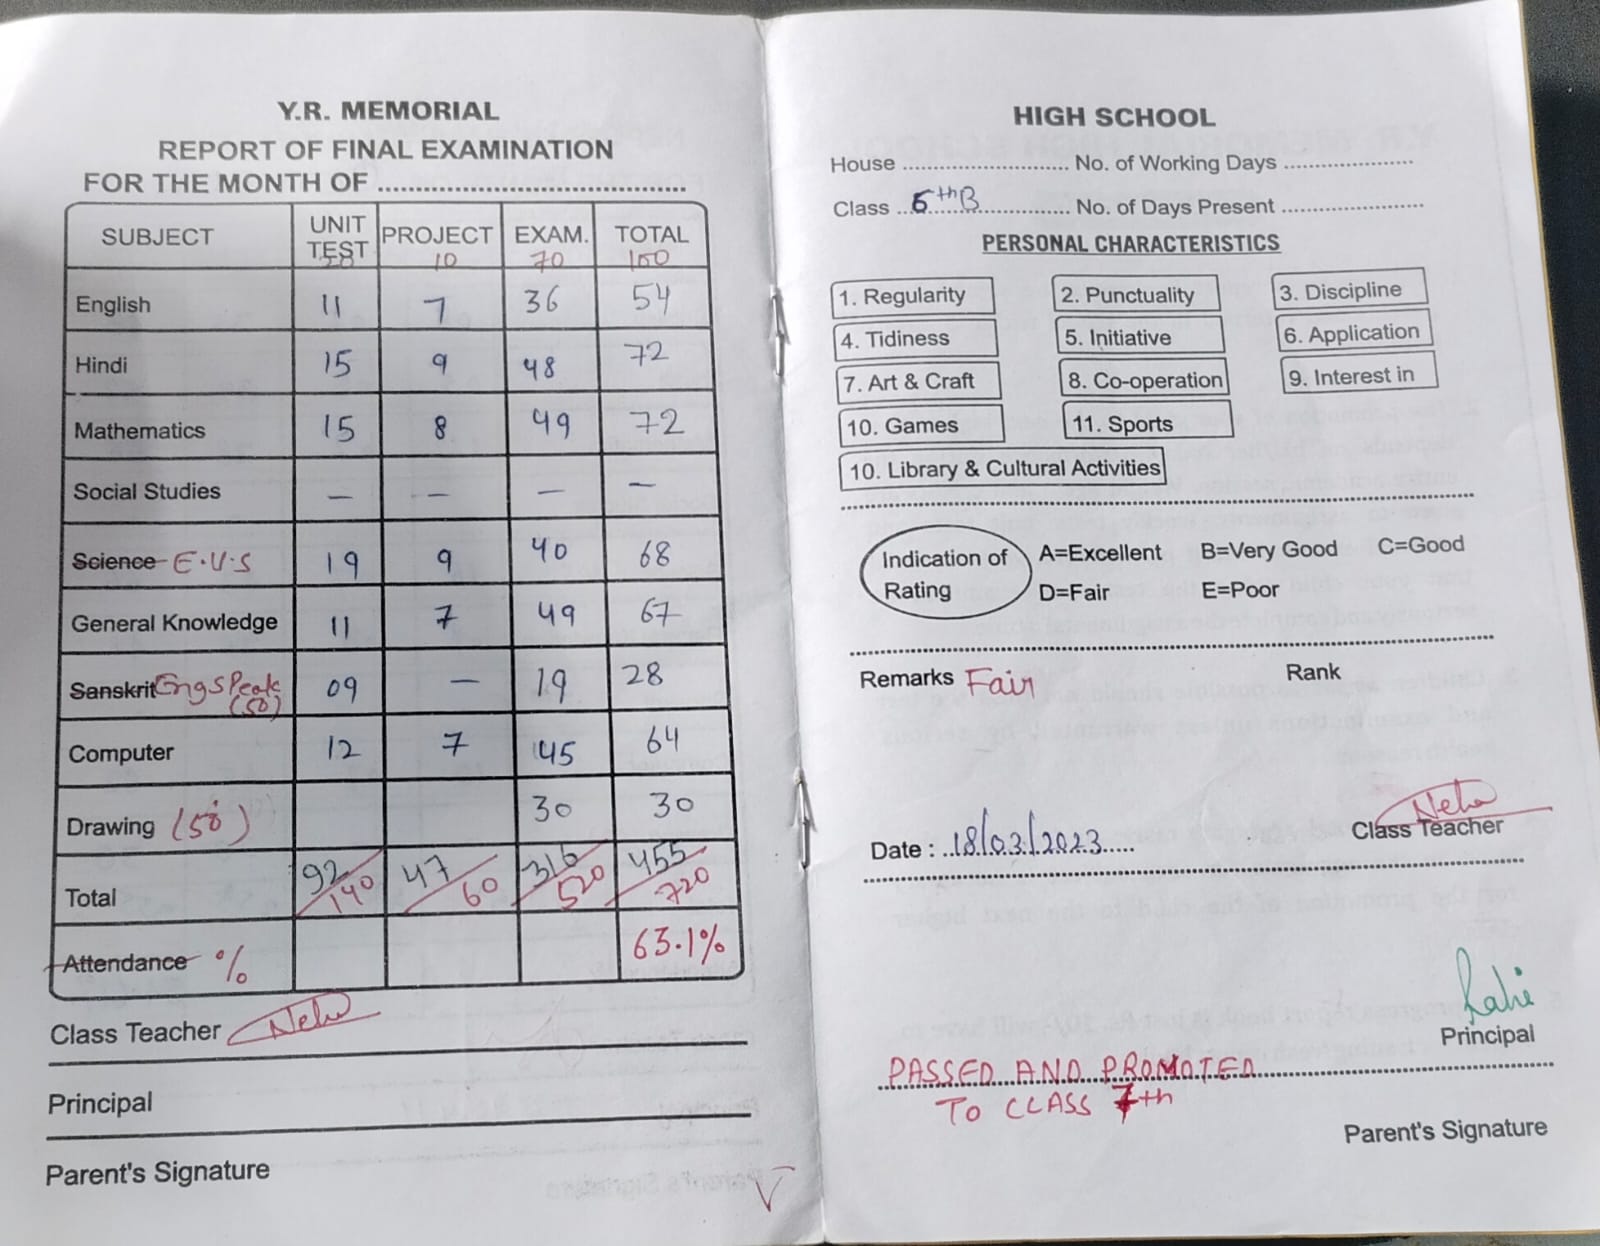 Y.R. MEMORIAL
REPORT OF FINAL EXAMINATION
FOR THE MONTH OF ........................................
SUBJECT UNIT TEST 20 PROJECT 10 EXAM. 70 TOTAL 100
English 11 7 36 54
Hindi 15 9 48 72
Mathematics 15 8 49 72
Social Studies — — — —
Science E.V.S 19 9 40 68
General Knowledge 11 7 49 67
Sanskrit Eng Speak (50) 09 — 19 28
Computer 12 7 45 64
Drawing (50) 30 30
Total 92/140 47/60 316/520 455/720
Attendance % 63.1%
Class Teacher Neha
Principal
Parent's Signature
HIGH SCHOOL
House ........................ No. of Working Days ....................
Class ... 6th B ............ No. of Days Present ......................
PERSONAL CHARACTERISTICS
1. Regularity 2. Punctuality 3. Discipline
4. Tidiness 5. Initiative 6. Application
7. Art & Craft 8. Co-operation 9. Interest in
10. Games 11. Sports
10. Library & Cultural Activities
Indication of Rating A=Excellent B=Very Good C=Good
D=Fair E=Poor
Remarks Fair Rank
Neha
Date : ..18/03/2023..... Class Teacher
Principal
PASSED AND PROMOTED
TO CLASS 7th
Parent's Signature